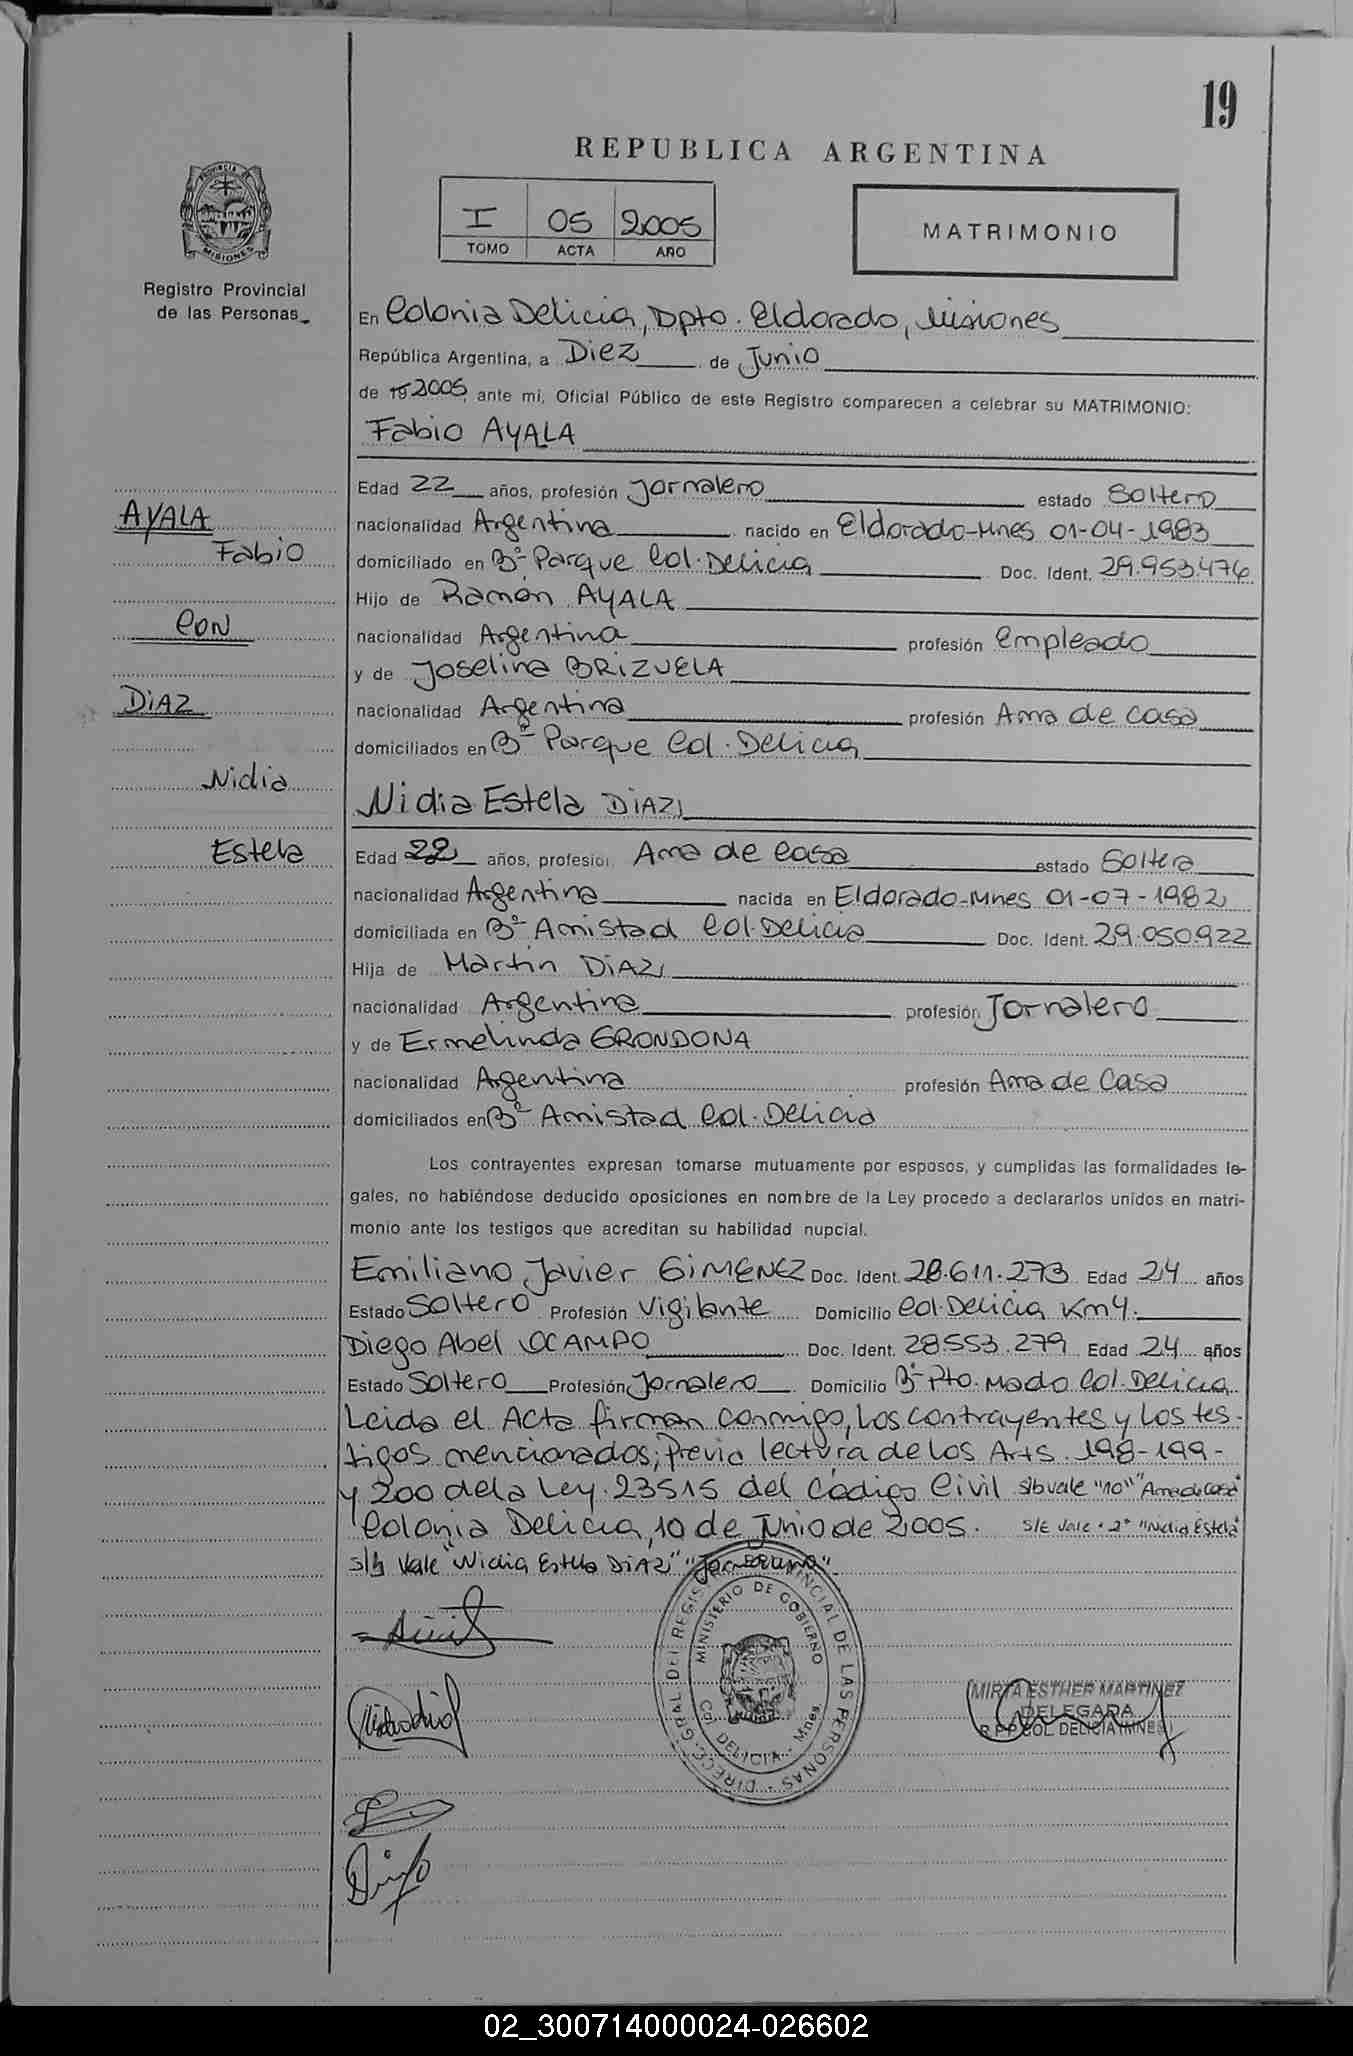 19
REPUBLICA ARGENTINA
I 05 2005
TOMO ACTA AÑO
MATRIMONIO
PROVINCIA DE
MISIONES
Registro Provincial
de las Personas
En Colonia Delicia, Dpto. Eldorado, Misiones
República Argentina, a Diez de Junio
de 19 2005, ante mi, Oficial Público de este Registro comparecen a celebrar su MATRIMONIO:
Fabio AYALA
Edad 22 años, profesión Jornalero estado Soltero
AYALA
nacionalidad Argentina nacido en Eldorado-Mnes 01-04-1983
Fabio
domiciliado en Bº Parque Col. Delicia Doc. Ident. 29.953.476
Hijo de Ramón AYALA
CON
nacionalidad Argentina profesión Empleado
y de Joselina BRIZUELA
DIAZ
nacionalidad Argentina profesión Ama de casa
domiciliados en Bº Parque Col. Delicia
Nidia
Nidia Estela DIAZ
Estela
Edad 22 años, profesión Ama de Casa estado Soltera
nacionalidad Argentina nacida en Eldorado-Mnes 01-07-1982
domiciliada en Bº Amistad Col. Delicia Doc. Ident. 29.050.922
Hija de Martín DIAZ
nacionalidad Argentina profesión Jornalero
y de Ermelinda GRONDONA
nacionalidad Argentina profesión Ama de Casa
domiciliados en Bº Amistad Col. Delicia
Los contrayentes expresan tomarse mutuamente por esposos, y cumplidas las formalidades le-
gales, no habiéndose deducido oposiciones en nombre de la Ley procedo a declararlos unidos en matri-
monio ante los testigos que acreditan su habilidad nupcial.
Emiliano Javier GIMENEZ Doc. Ident. 28.611.273 Edad 24 años
Estado Soltero Profesión Vigilante Domicilio Col. Delicia Km 4.
Diego Abel OCAMPO Doc. Ident. 28.553.279 Edad 24 años
Estado Soltero Profesión Jornalero Domicilio Bº Pto. Mado Col. Delicia
Leida el Acta firman conmigo, los contrayentes y los tes-
tigos mencionados; Previa lectura de los Arts. 198-199-
y 200 de la Ley. 23515 del Código Civil s/b vale "10" "Ama de casa"
Colonia Delicia, 10 de Junio de 2005. s/E vale "2" "Nidia Estela"
s/b vale "Nidia Estela DIAZ"
DIREC. GRAL. DEL REGISTRO PROVINCIAL DE LAS PERSONAS
MINISTERIO DE GOBIERNO
Col. DELICIA - Mnes.
MIRTA ESTHER MARTINEZ
DELEGADA
R.P.P. COL. DELICIA (MNES)
02_300714000024-026602